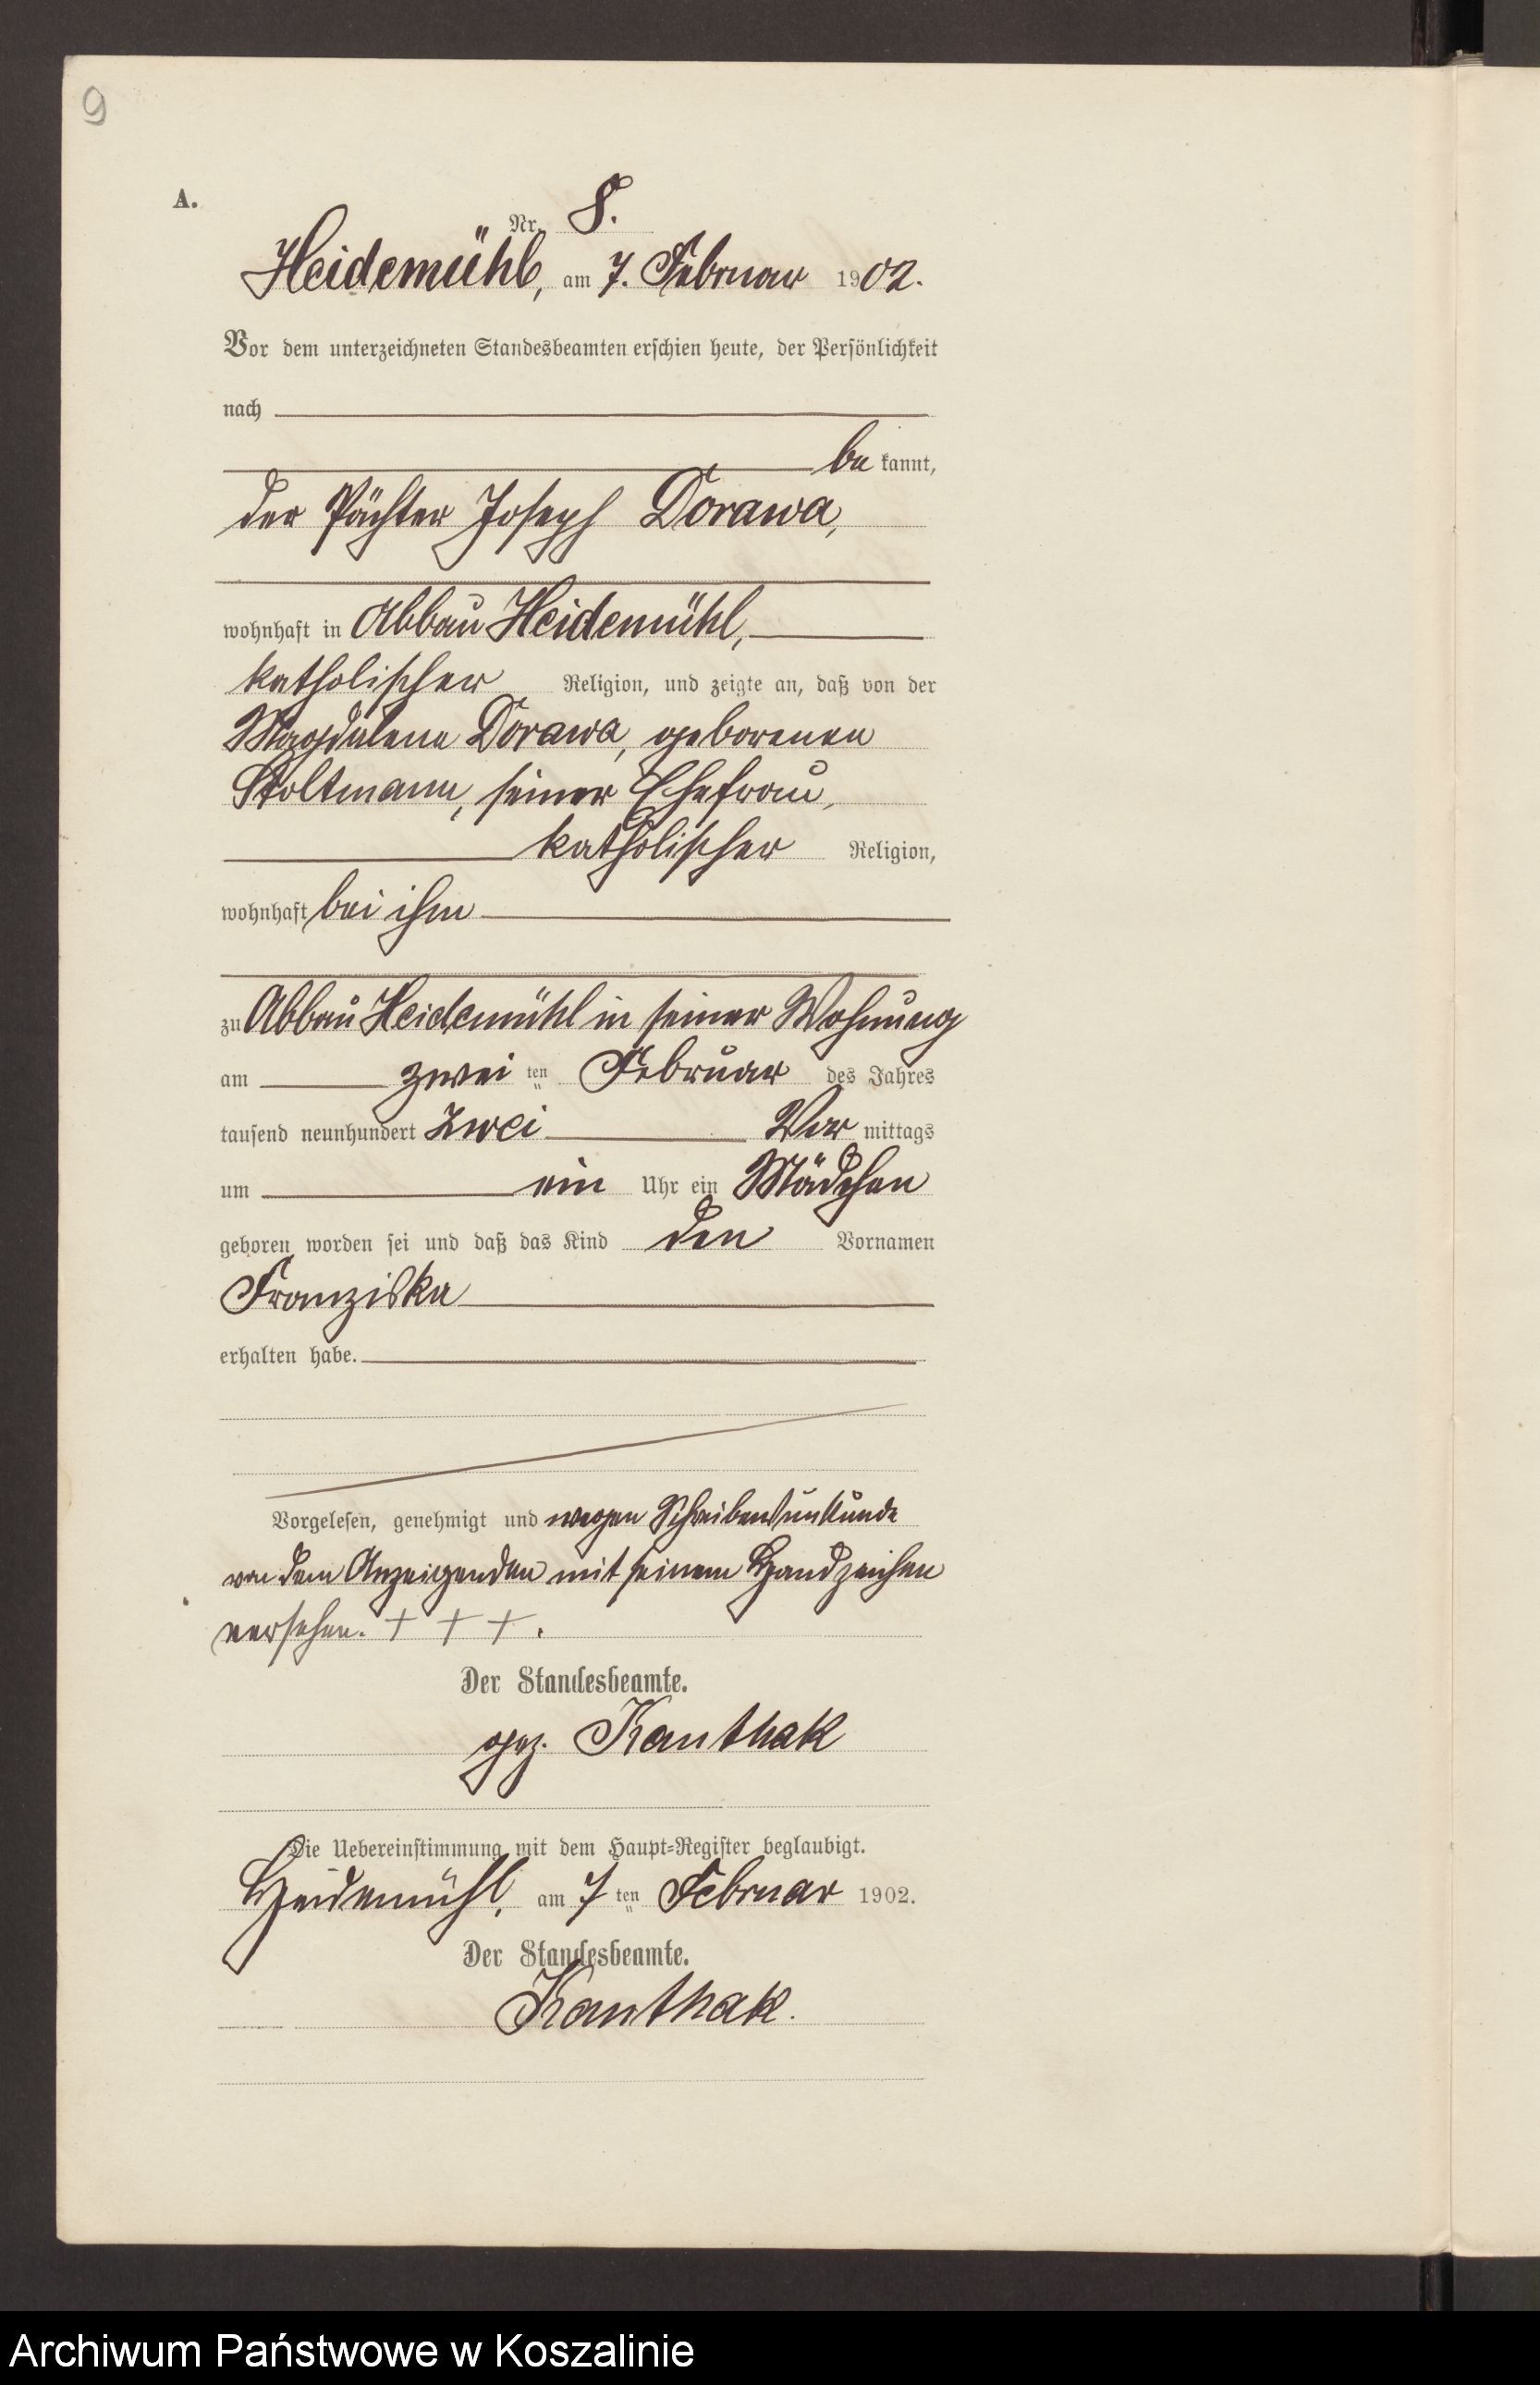 9
A.
Nr. 8.
Heidemühl, am 7. Februar 1902.
Vor dem unterzeichneten Standesbeamten erschien heute, der Persönlichkeit
nach
be kannt,
der Pächter Joseph Dorawa,
wohnhaft in Abbau Heidemühl,
katholischer Religion, und zeigte an, daß von der
Magdalena Dorawa, geborenen
Stoltmann, seiner Ehefrau,
katholischer Religion,
wohnhaft bei ihm
zu Abbau Heidemühl in seiner Wohnung
am zwei ten Februar des Jahres
tausend neunhundert zwei Vor mittags
um ein Uhr ein Mädchen
geboren worden sei und daß das Kind den Vornamen
Franziska
erhalten habe.
Vorgelesen, genehmigt und wegen Schreibensunkunde
von dem Anzeigenden mit seinem Handzeichen
versehen. + + + .
Der Standesbeamte.
gez. Kanthak
Die Uebereinstimmung mit dem Haupt-Register beglaubigt.
Heidemühl, am 7 ten Februar 1902.
Der Standesbeamte.
Kanthak.
Archiwum Państwowe w Koszalinie